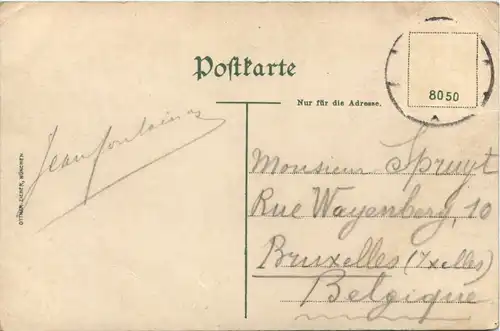 Postkarte
8050
Nur für die Adresse.
Jean Fontaine
OTTMAR ZIEHER, MÜNCHEN
Monsieur Spruyt
Rue Wayenberg, 10
Bruxelles (Ixelles)
Belgique